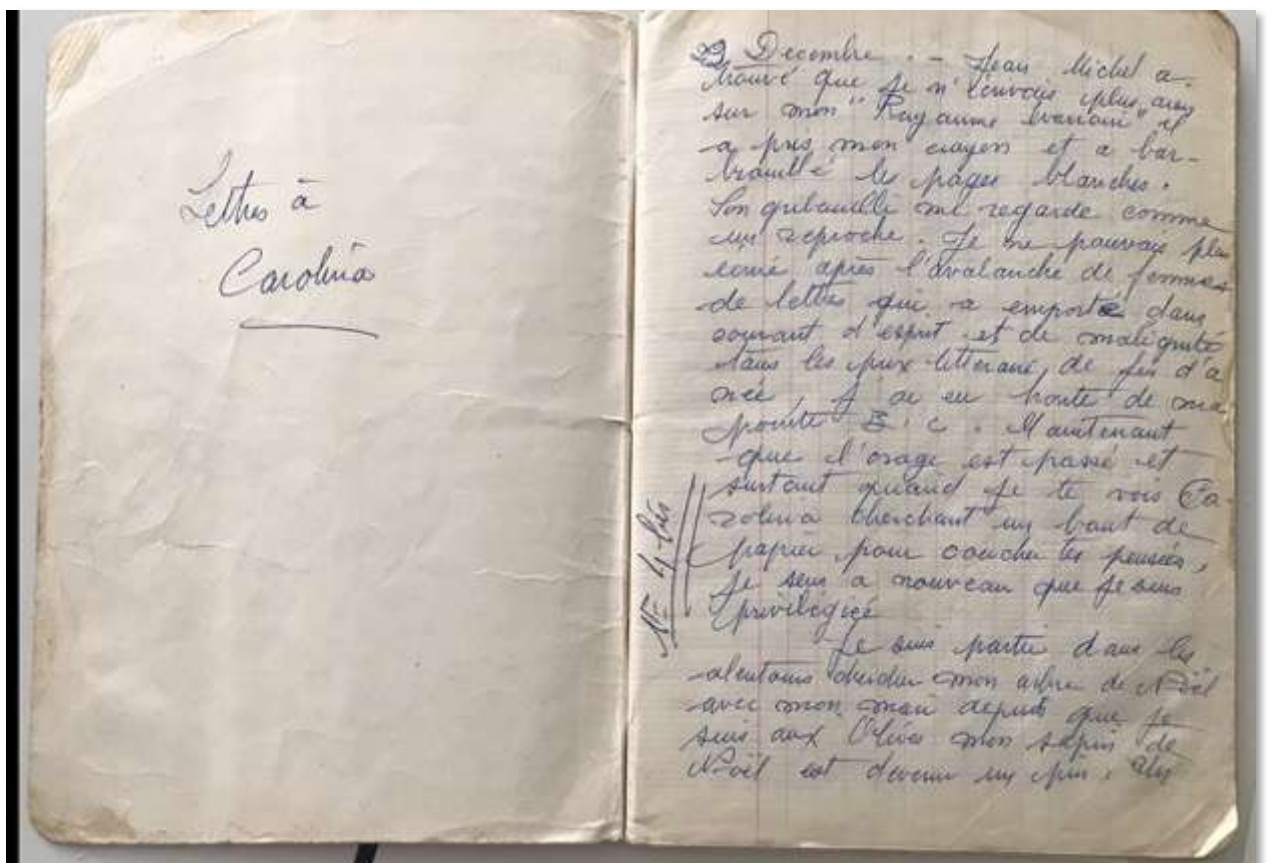 Lettres à
Carolina
22 Decembre . - Jean Michel a
trouvé que je n'écrivais plus assez
sur mon "Royaume évanoui" il
a pris mon crayon et a bar-
bouillé les pages blanches.
Son gribouilli me regarde comme
un reproche. Je ne pouvais plus
écrire après l'avalanche de femmes
de lettres qui a emporté dans
courant d'esprit et de malignité
tous les prix littéraire, de fin d'a
née, j'ai eu honte de ma
pointe B. c. Maintenant
que l'orage est passé et
surtout quand je te vois Ca-
rolina cherchant un bout de
papier pour coucher tes pensées,
je sens a nouveau que je suis
privilégiée
N= 4 bis
Je suis partie dans les
alentours chercher mon arbre de Noël
avec mon mari depuis que je
suis aux Olives mon sapin de
Noël est devenu un pin.